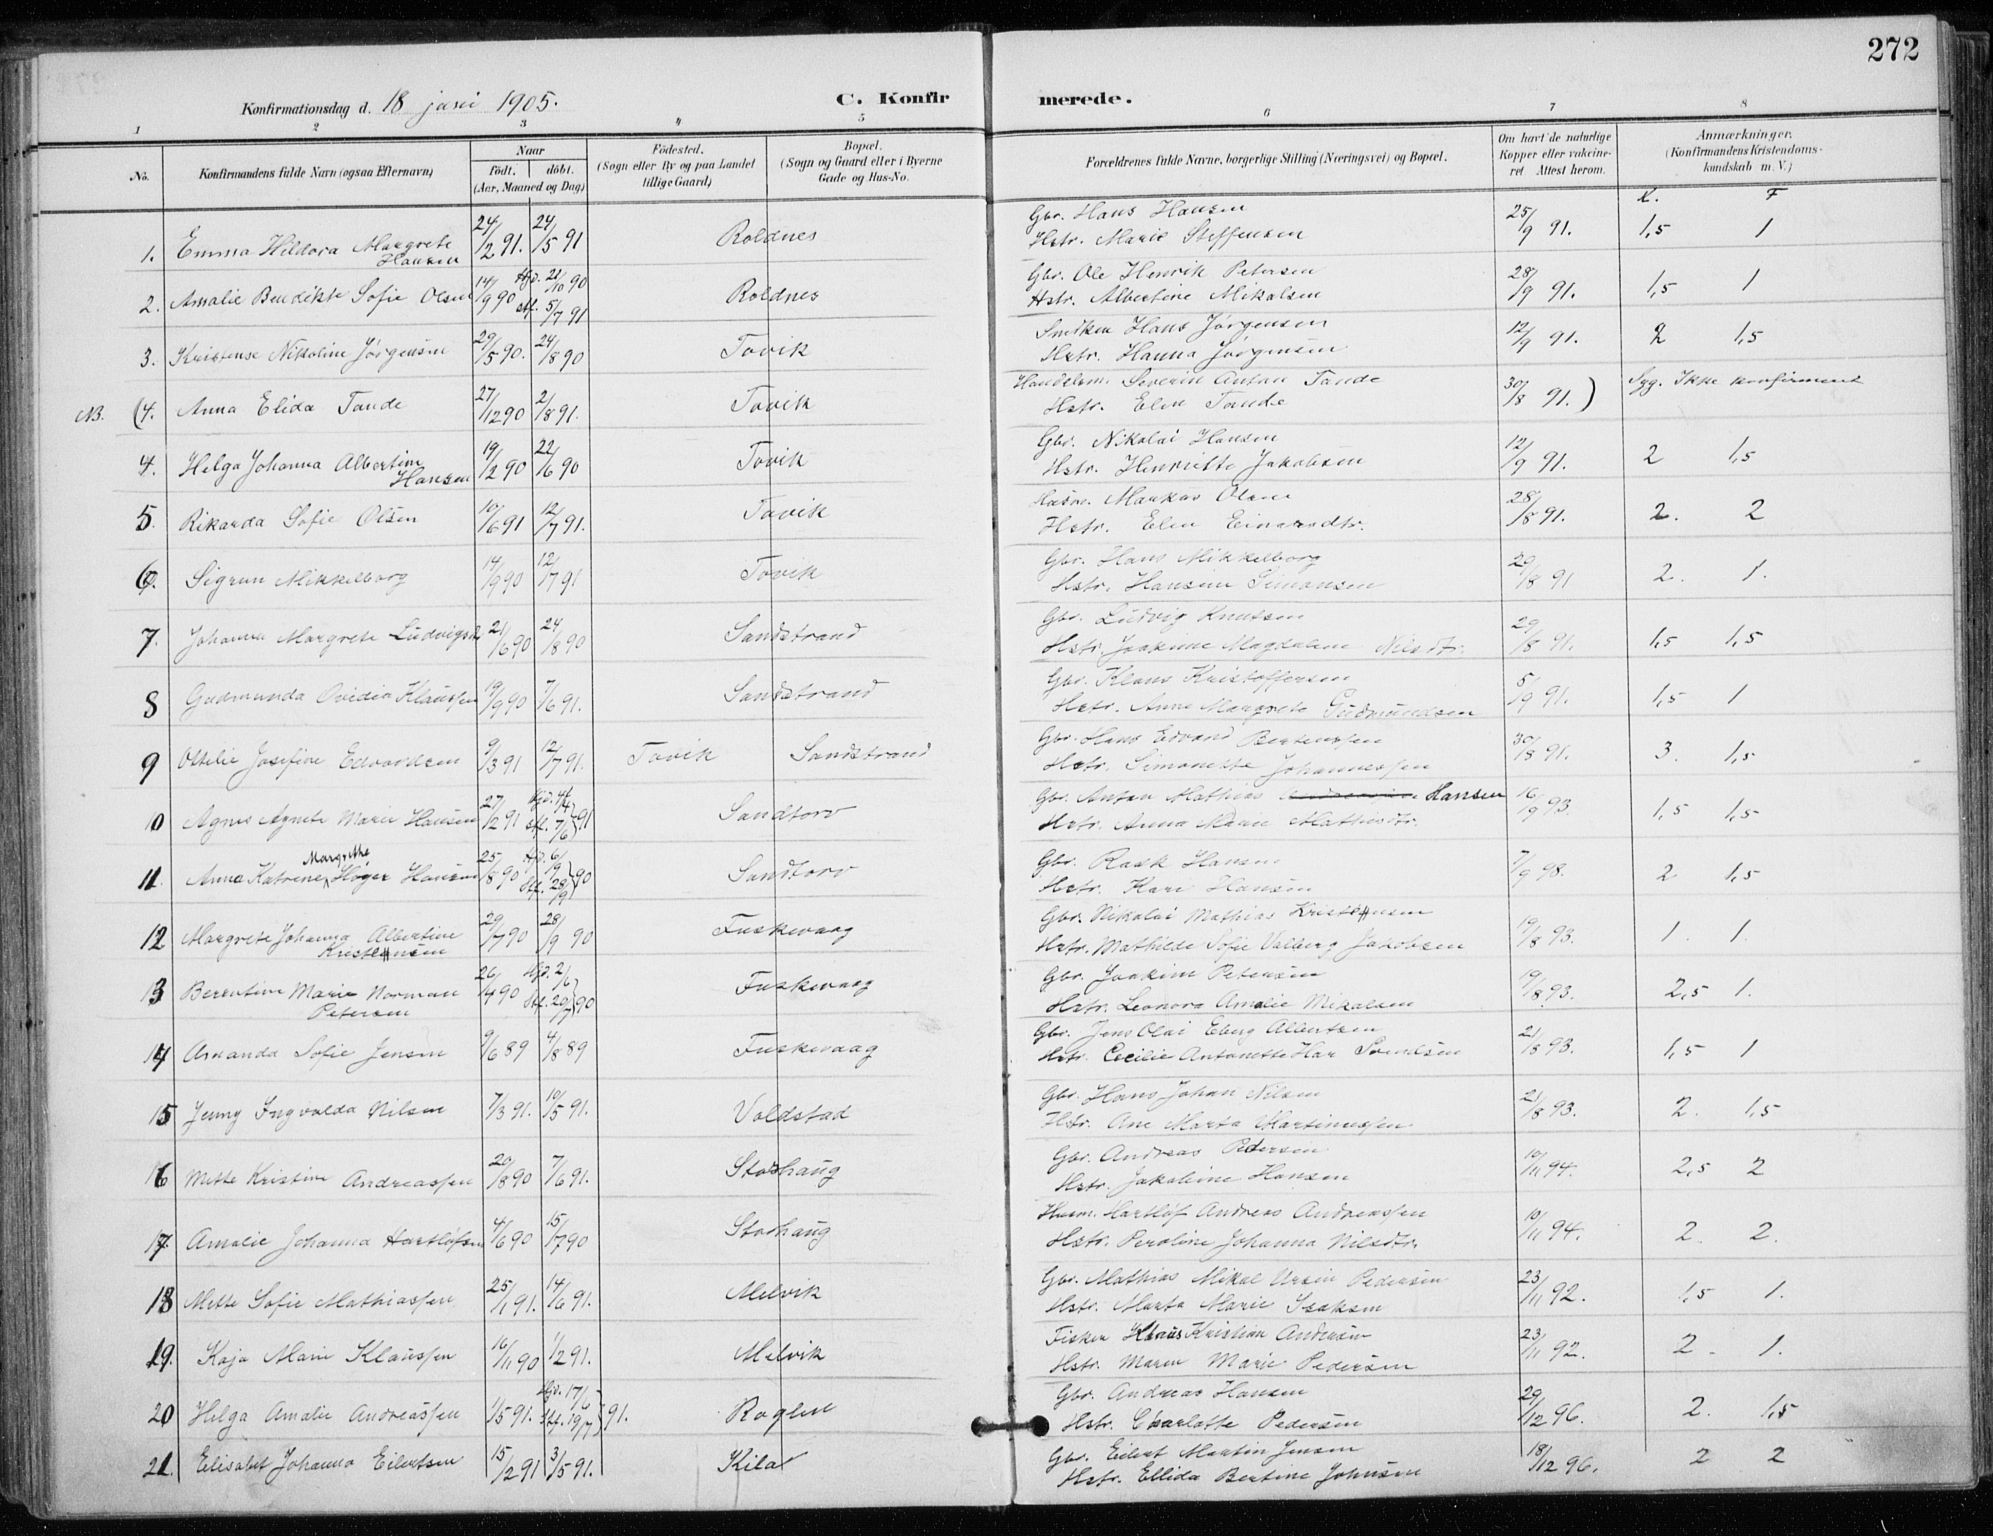 272
Konfirmationsdag d. 18 juni 1905.
C. Konfir merede.
1 2 3 4 5 6 7 8
No.
Konfirmandens fulde Navn (ogsaa Efternavn)
Naar
født. døbt.
(Aar, Maaned og Dag)
Fødested.
(Sogn eller By og paa Landet
tillige Gaard)
Bopæl.
(Sogn og Gaard eller i Byerne
Gade og Hus-No.
Forældrenes fulde Navne, borgerlige Stilling (Næringsvei) og Bopæl.
Om havt de naturlige
Kopper eller vakcine-
ret Attest herom.
Anmærkninger.
(Konfirmandens Kristendoms-
kundskab m. V.)
K. F
1. Emma Hildora Margrete Hansen 24/2 91. 24/5 91 Roldnes Gbr. Hans Hansen 25/9 91. 1,5 1
Hstr. Marie Steffensen
2. Amalie Bendikte Sofie Olsen 14/9 90 Hjd. 21/10 90 Roldnes Gbr. Ole Henrik Petersen 28/9 91. 1,5 1
stf. 5/7 91 Hstr. Albertine Mikalsen
3. Kristense Nikoline Jørgensen 29/5 90. 24/8 90 Tovik Snedker Hans Jørgensen 12/9 91. 2 1,5
Hstr. Hanna Jørgensen
NB. (4. Anna Elida Tande 27/12 90 2/8 91. Tovik Handelsm. Severin Anton Tande 30/8 91. ) Syg. Ikke konfirmeret
Hstr. Elen Tande
4. Helga Johanna Albertine Hansen 19/2 90 22/6 90 Tovik Gbr. Nikolai Hansen 12/9 91. 2 1,5
Hstr. Henriette Jakobsen
5. Rikarda Sofie Olsen 10/6 91 12/7 91. Tovik Markus Olsen 28/8 91. 2. 2
Hstr. Elen Einarsdtr.
6. Sigrun Mikkelborg 14/9 90 12/7 91 Tovik Gbr. Hans Mikkelborg 29/8 91 2. 1.
Hstr. Hansine Simonsen
7. Johanna Margrete Ludvigsd. 21/6 90 24/8 90 Sandstrand Gbr. Ludvig Knutsen 29/8 91. 1,5 1,5
Hstr. Joakime Magdalene Nilsdtr.
8 Gudmunda Ovidia Klaussen 19/9 90 7/6 91. Sandstrand Gbr. Klaus Kristoffersen 5/9 91. 1,5 1
Hstr. Anne Margrete Gudmundsen
9 Ottelie Josefine Edvardsen 9/3 91 12/7 91. Tovik Sandstrand Gbr. Hans Edvard Berteussen 30/8 91. 3. 1,5
Hstr. Simonette Johannessen
10 Agnes Agnete Marie Hansen 27/2 91 Hjd. 4/4 stf. 7/6 } 91 Sandtorv Gbr. Anton Mathias Hansen 16/9 93. 1,5 1,5
Hstr. Anna Maria Mathisdtr.
11. Anna Katrine Margrethe Høger Hansen 25/8 90 Hjd. 6/9 Stf. 28/9 } 90 Sandtorv Gbr. Rask Hansen 7/9 98. 2 1,5
Hstr. Kari Hansen
12 Margrete Johanna Albertine Kristensen 29/7 90 28/9 90 Fuskevaag Gbr. Nikolai Mathias Kristensen 19/8 93. 1. 1.
Hstr. Mathilde Sofie Valberg Jakobsen
13 Berentine Marie Norman Petersen 26/4 90 Hjd. 2/6 Stf. 20/7 } 90 Fuskevaag Gbr. Joakim Petersen 19/8 93. 2,5 1.
Hstr. Leonora Amalie Mikalsen
14 Amanda Sofie Jensen 9/6 89 4/8 89 Fuskevaag Gbr. Jens Olai Eberg Albertsen 21/8 93. 1,5 1
Hstr. Cecilie Antonette Har Svendsen
15 Jenny Ingvalda Nilsen 7/3 91. 10/5 91. Voldstad Gbr. Hans Johan Nilsen 21/8 93. 2. 1,5
Hstr. Ane Marta Martinussen
16 Mette Kristine Andreassen 20/8 90 7/6 91. Storhaug Gbr. Andreas Petersen 10/11 94. 2,5 2
Hstr. Jakobine Hansen
17. Amalie Johanna Hartløfsen 4/6 90 15/7 90 Storhaug Husm. Hartløf Andreas Andreassen 10/11 94. 2. 2.
Hstr. Peroline Johanna Nilsdtr.
18 Mette Sofie Mathiassen 25/1 91. 14/6 91. Melvik Gbr. Mathias Mikal Ursin Pedersen 23/11 92. 1,5 1.
Hstr. Marta Marie Isaksen
19. Kaja Marie Klaussen 16/11 90 1/2 91. Melvik Fisker Klaus Kristian Andersen 23/11 92. 2. 1.
Hstr. Maren Marie Pedersen
20 Helga Amalie Andreassen 1/5 91. Hjd. 17/6 Stf. 19/7 } 91. Roglen Gbr. Andreas Hansen 29/12 96. 2. 1,5
Hstr. Charlotte Pedersen
21. Elisabet Johanna Eilertsen 15/2 91 3/5 91. Kila Gbr. Eilert Martin Jensen 18/12 96. 2 2
Hstr. Ellida Bertine Johnsen